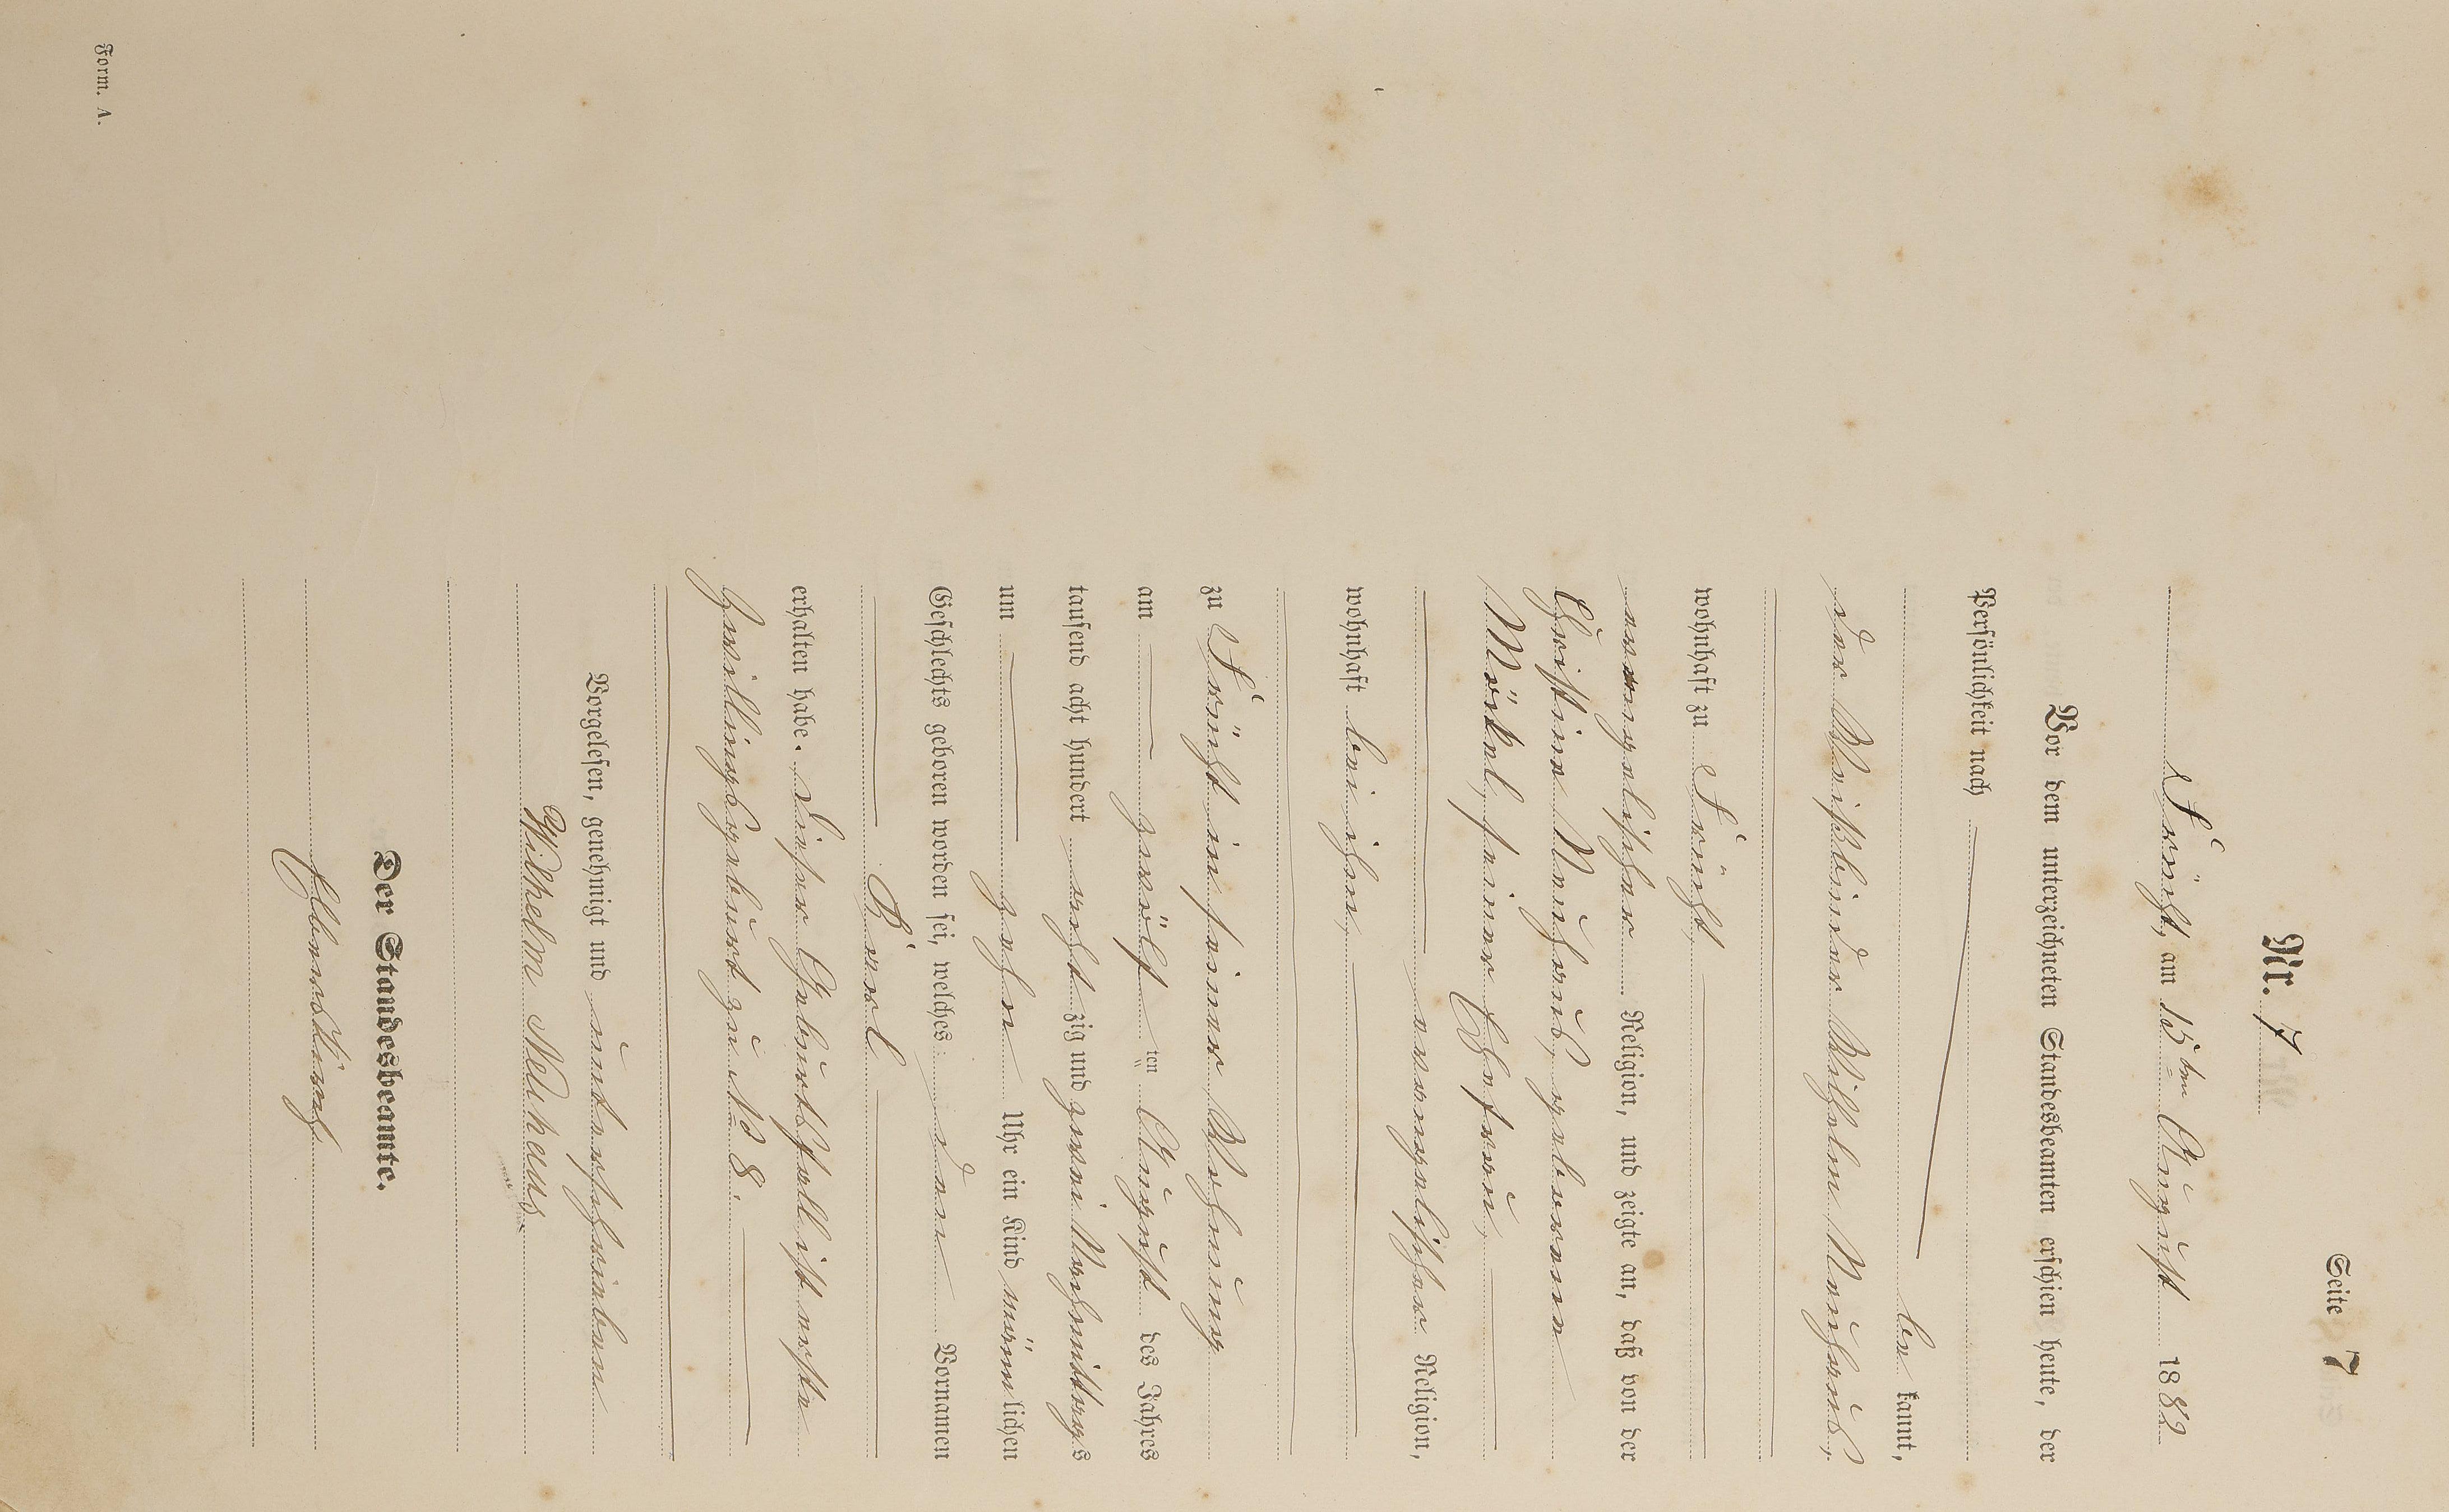 Seite 7
Nr. 7
Frücht, am 15ten August 1882
Vor dem unterzeichneten Standesbeamten erschien heute, der
Persönlichkeit nach
be kannt,
der Weißbinder Wilhelm Neuhaus,
wohnhaft zu Frücht,
evangelischer Religion, und zeigte an, daß von der
Christine Neuhaus, geborene
Mökel, seiner Ehefrau,
evangelischer Religion,
wohnhaft bei ihm,
zu Frücht in seiner Wohnung
am zwölf ten August des Jahres
tausend acht hundert acht zig und zwei Nachmittags
um zehn Uhr ein Kind männ lichen
Geschlechts geboren worden sei, welches den Vornamen
Karl
erhalten habe. Dieser Geburtsfall ist erste
Zwillingsgeburt zu No 8.
Vorgelesen, genehmigt und unterschrieben
Wilhelm Neuhaus
Der Standesbeamte.
Form. A.